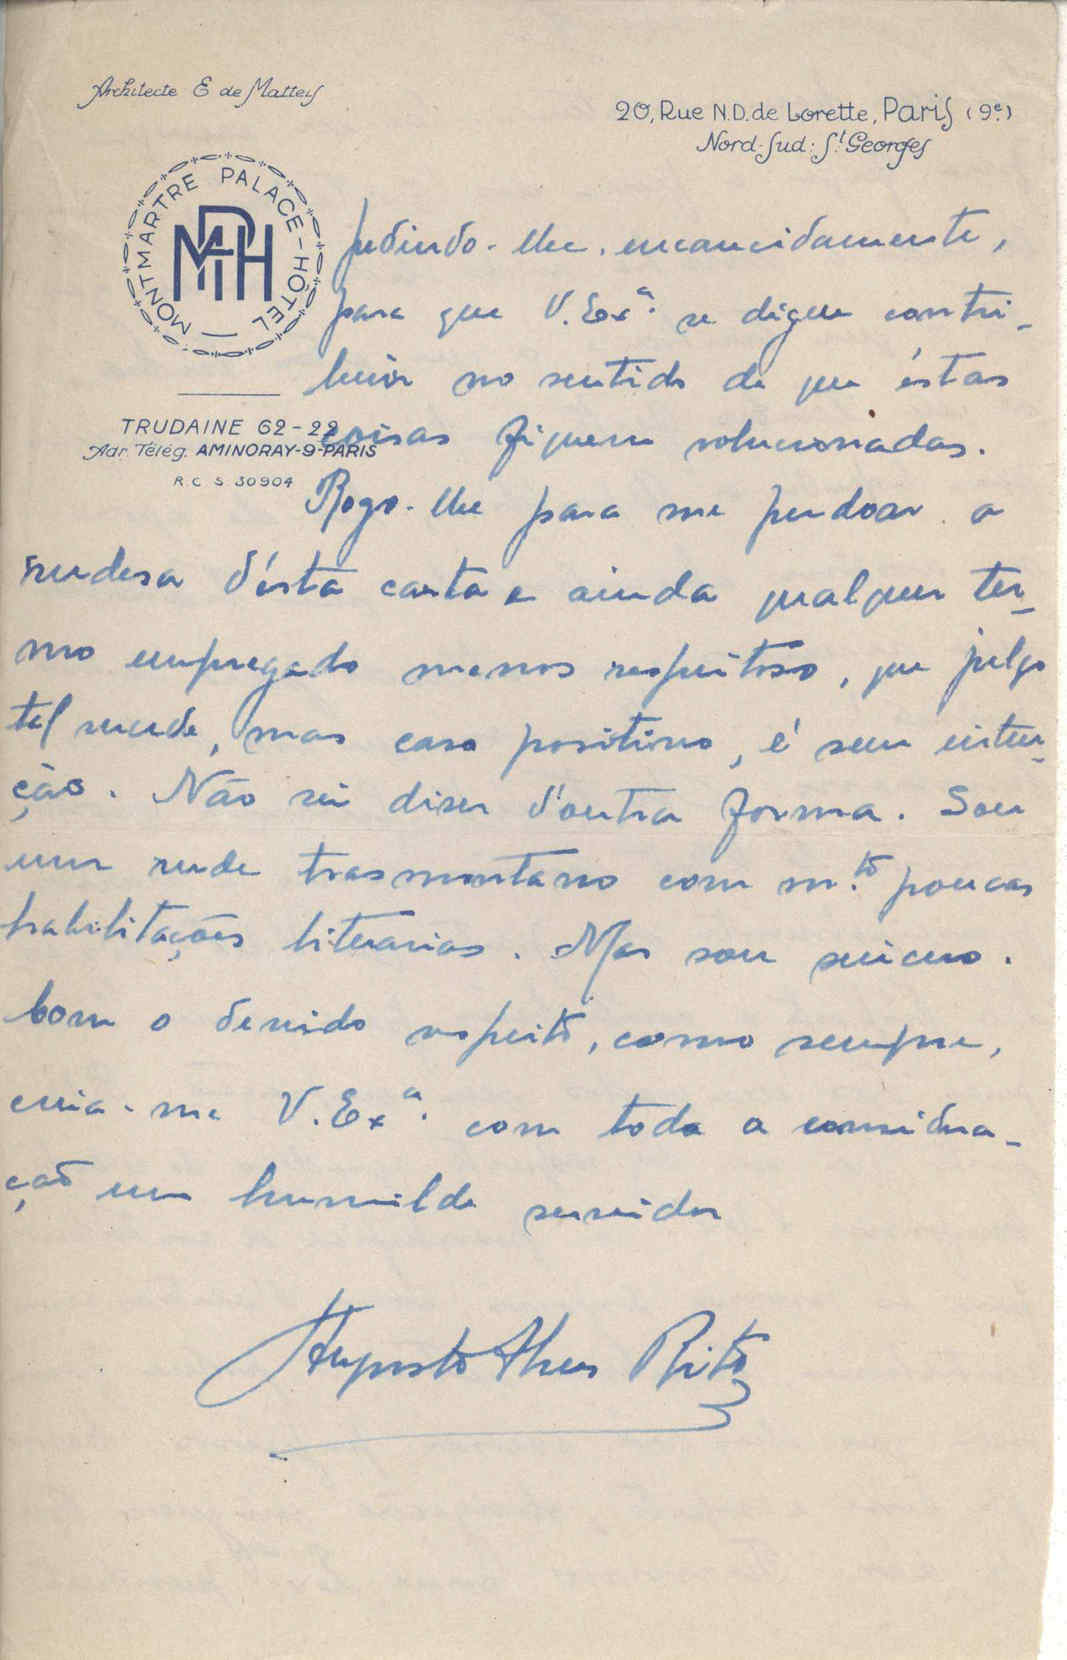 Architecte E de Matteis
20, Rue N.D. de Lorette, Paris (9e)
Nord-Sud: St Georges
MONTMARTRE PALACE-HÔTEL
MPH
TRUDAINE 62-22
Adr. Télég. AMINORAY-9-PARIS
R.C S 30904
pedindo-lhe, encarecidamente,
para que V. Exª. se digne contri-
buir no sentido de que éstas
coisas fiquem solucionadas.
Rogo-lhe para me perdoar a
rudesa d'ésta carta e ainda qualquer ter-
mo empregado menos respeitoso, que julgo
tal sucede, mas caso positivo, é sem inten-
ção. Não sei diser d'outra forma. Sou
um rude trasmontano com m.to poucas
habilitações literarias. Mas sou sincero.
Com o devido respeito, como sempre,
creia-me V. Exª. com toda a considera-
ção um humilde servidor
Augusto Alves Brito